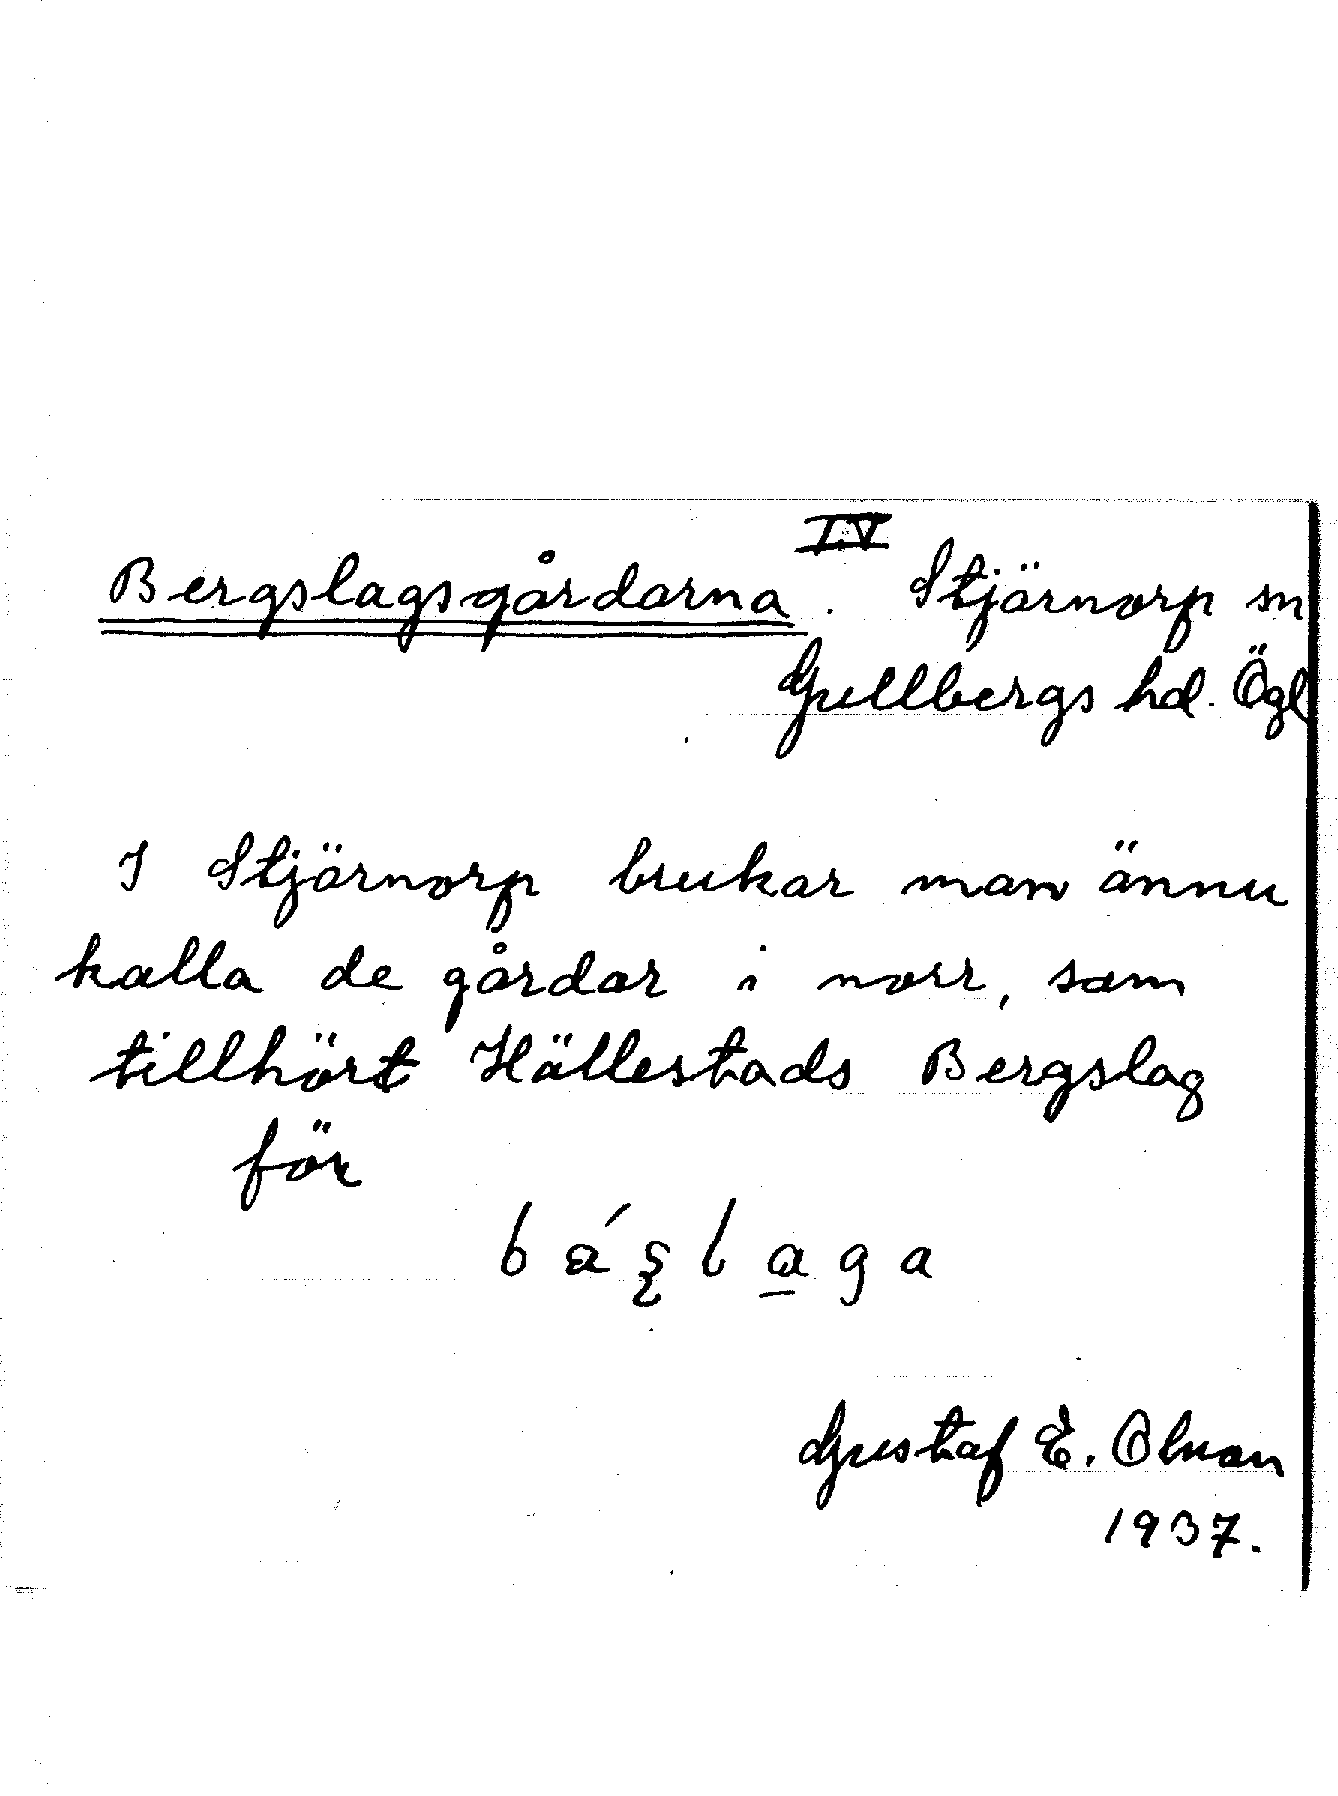 I.V
Bergslagsgårdarna. Stjärnorp sn
Gullbergs hd. Ögl
I Stjärnorp brukar man ännu
kalla de gårdar i norr, som
tillhört Hällestads Bergslag
för
bá̈ʂlaga
Gustaf E. Olsson
1937.